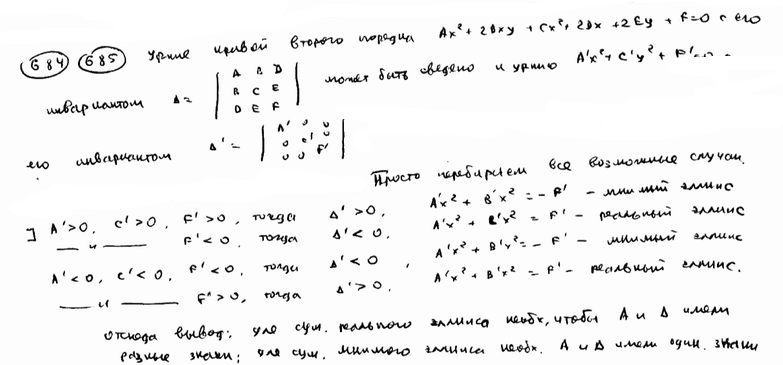 684 685 Ур-ние кривой второго порядка Ax² + 2Bxy + Cx² + 2Dx + 2Ey + F=0 с его
инвариантом Δ = | A B D | может быть сведено к ур-нию A'x² + C'y² + F'=0
| B C E |
| D E F |
его инвариантом Δ' = | A' 0 0 |
| 0 C' 0 |
| 0 0 F' |
Просто перебираем все возможные случаи.
] A'>0, C'>0, F'>0, тогда Δ'>0, A'x² + B'x² = -F' - мнимый эллипс
—— и —— F'<0, тогда Δ'<0, A'x² + B'x² = F' - реальный эллипс
A'<0, C'<0, F'<0, тогда Δ'<0, A'x² + B'x² = -F' - мнимый эллипс
—— и —— F'>0, тогда Δ'>0, A'x² + B'x² = F' - реальный эллипс.
отсюда вывод: для сущ. реального эллипса необх, чтобы A и Δ имели
разные знаки; для сущ. мнимого эллипса необх. A и Δ имели один. знаки